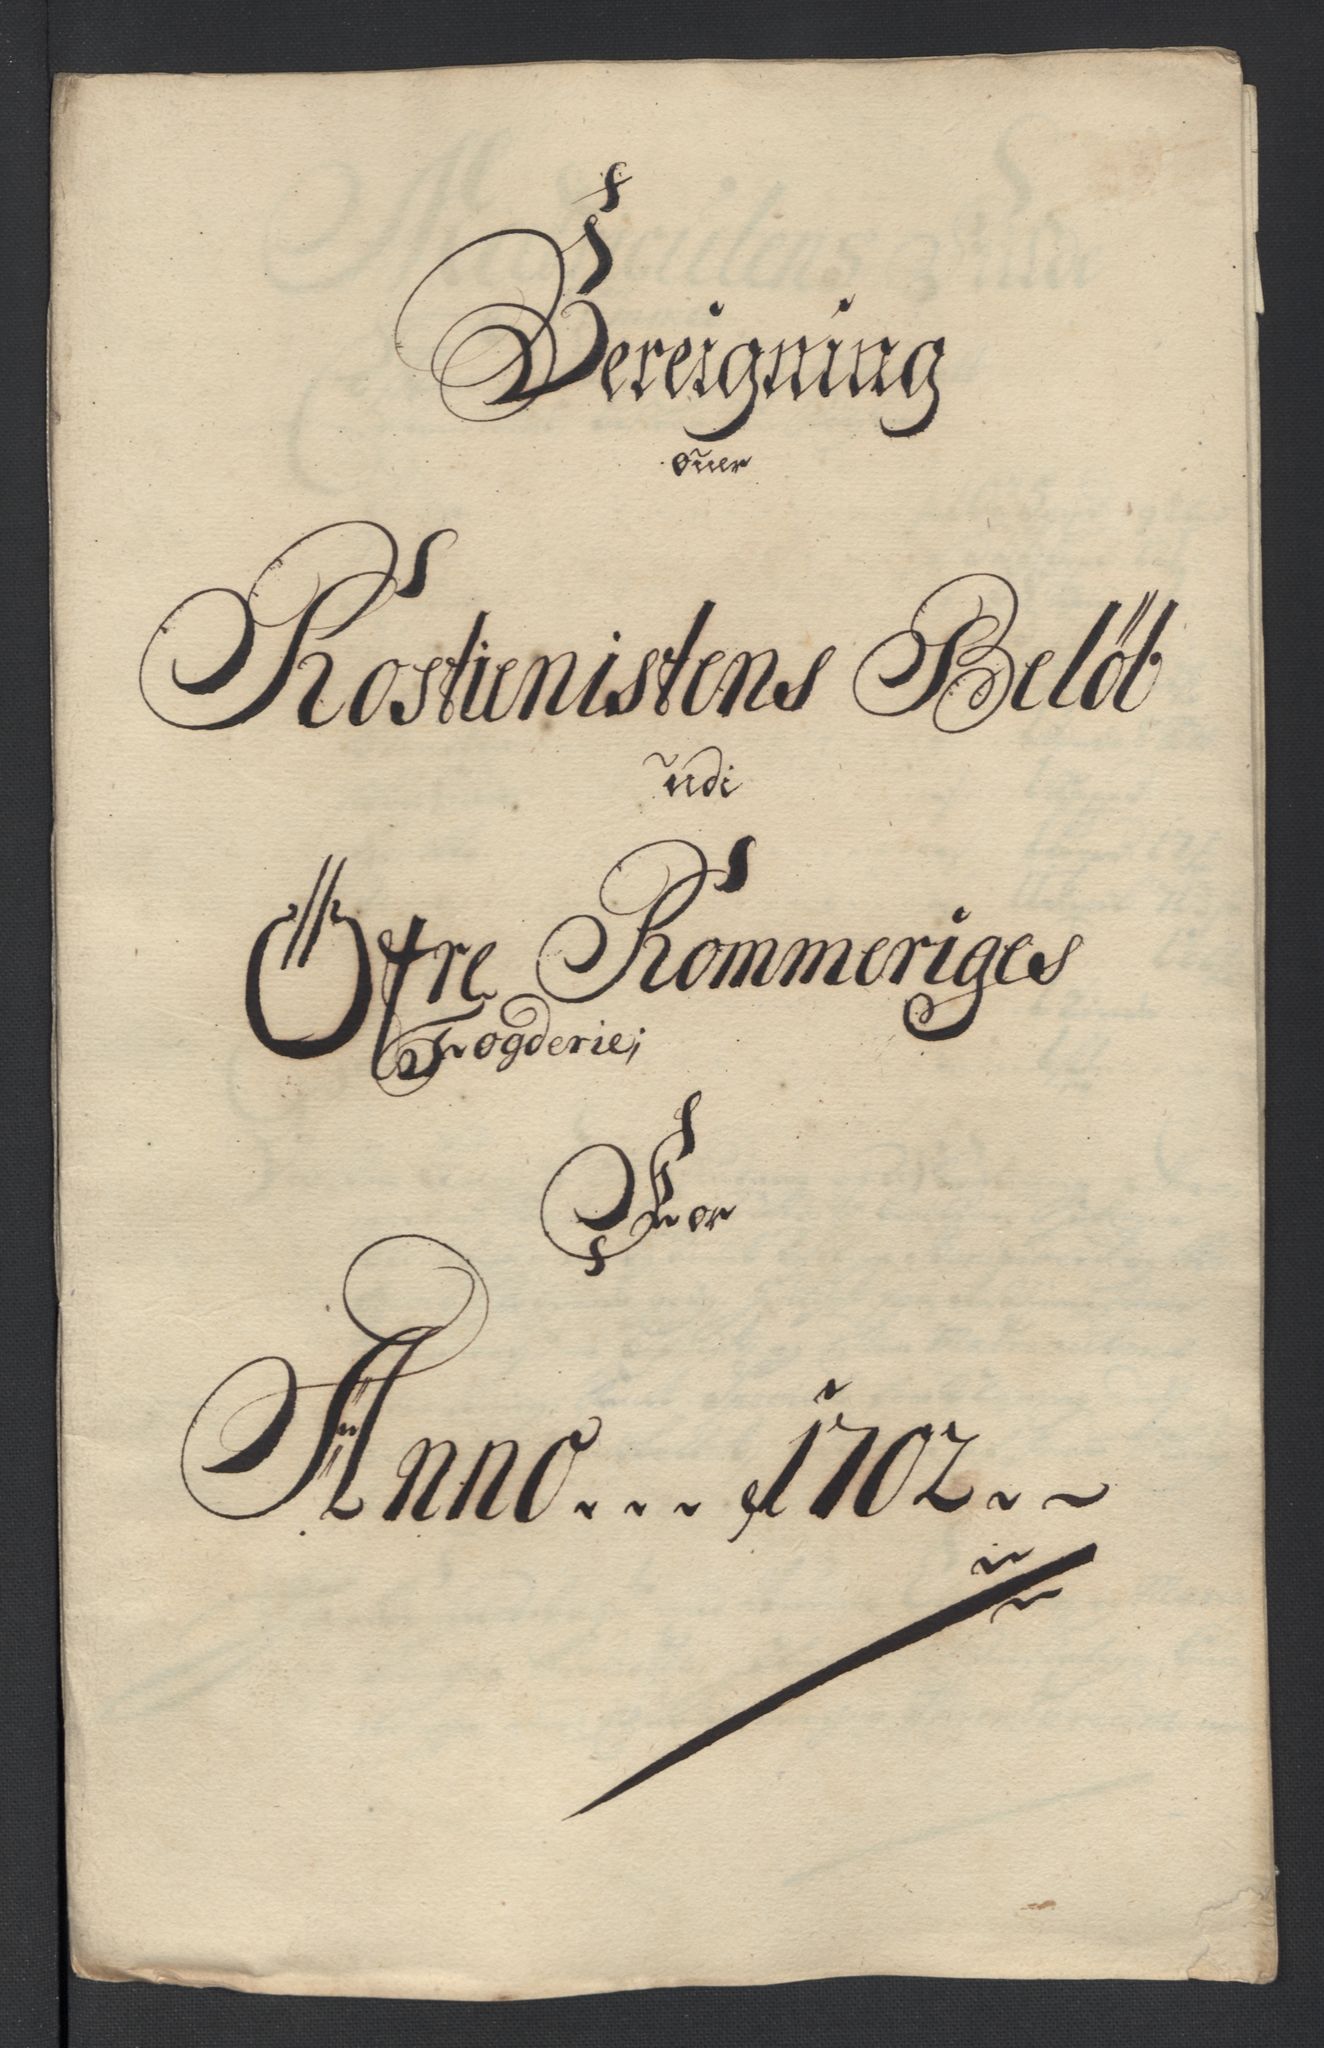 Bereigning
ouer
Rostienistens Belöb
udi
Öfre Rommeriges
Fogderie;
For
Anno... 1702..